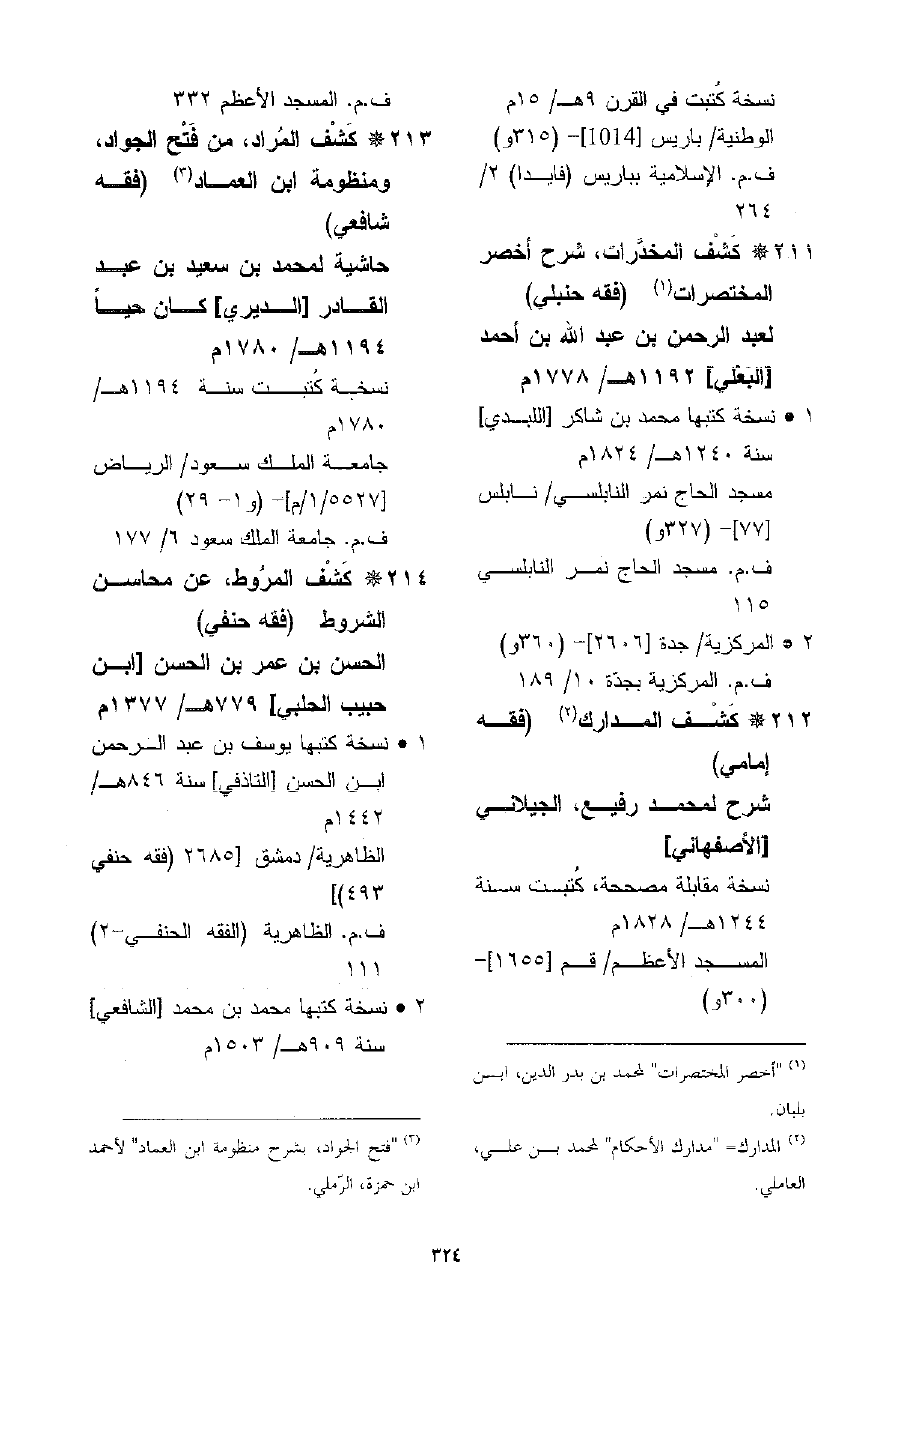 نسخة كُتبت في القرن ٩هـ/ ١٥م
الوطنية/ باريس [1014]- (٣١٥و)
ف.م. الإسلامية بباريس (فايدا) ٢/
٢٦٤
٢١١ * كَشْف المخدَّرات، شرح أخصر
المختصرات(١) (فقه حنبلي)
لعبد الرحمن بن عبد الله بن أحمد
[البَعْلي] ١١٩٢هـ/ ١٧٧٨م
١ • نسخة كتبها محمد بن شاكر [اللبـدي]
سنة ١٢٤٠هـ/ ١٨٢٤م
مسجد الحاج نمر النابلسي/ نابلس
[٧٧]- (٣٢٧و)
ف.م. مسجد الحاج نمر النابلسي
١١٥
٢ • المركزية/ جدة [٢٦٠٦]- (٣٦٠و)
ف.م. المركزية بجدّة ١٠/ ١٨٩
٢١٢ * كَشْف المدارك(٢) (فقه
إمامي)
شرح لمحمد رفيع، الجيلاني
[الأصفهاني]
نسخة مقابلة مصححة، كُتبت سنة
١٢٤٤هـ/ ١٨٢٨م
المسجد الأعظم/ قم [١٦٥٥]-
(٣٠٠و)
(١) "أخصر المختصرات" لمحمد بن بدر الدين، ابن
بلبان.
(٢) المدارك= "مدارك الأحكام" لمحمد بن علي،
العاملي.
ف.م. المسجد الأعظم ٣٣٢
٢١٣ * كَشْف المُراد، من فَتْح الجواد،
ومنظومة ابن العماد(٣) (فقه
شافعي)
حاشية لمحمد بن سعيد بن عبد
القادر [الديري] كان حياً
١١٩٤هـ/ ١٧٨٠م
نسخة كُتبت سنة ١١٩٤هـ/
١٧٨٠م
جامعة الملك سعود/ الرياض
[٥٥٢٧/١/م]- (و١- ٢٩)
ف.م. جامعة الملك سعود ٦/ ١٧٧
٢١٤ * كَشْف المرُوط، عن محاسن
الشروط (فقه حنفي)
الحسن بن عمر بن الحسن [ابن
حبيب الحلبي] ٧٧٩هـ/ ١٣٧٧م
١ • نسخة كتبها يوسف بن عبد الرحمن
ابن الحسن [التاذفي] سنة ٨٤٦هـ/
١٤٤٢م
الظاهرية/ دمشق [٢٦٨٥ (فقه حنفي
٤٩٣)]
ف.م. الظاهرية (الفقه الحنفي-٢)
١١١
٢ • نسخة كتبها محمد بن محمد [الشافعي]
سنة ٩٠٩هـ/ ١٥٠٣م
(٣) "فتح الجواد، بشرح منظومة ابن العماد" لأحمد
ابن حمزة، الرّملي.
٣٢٤